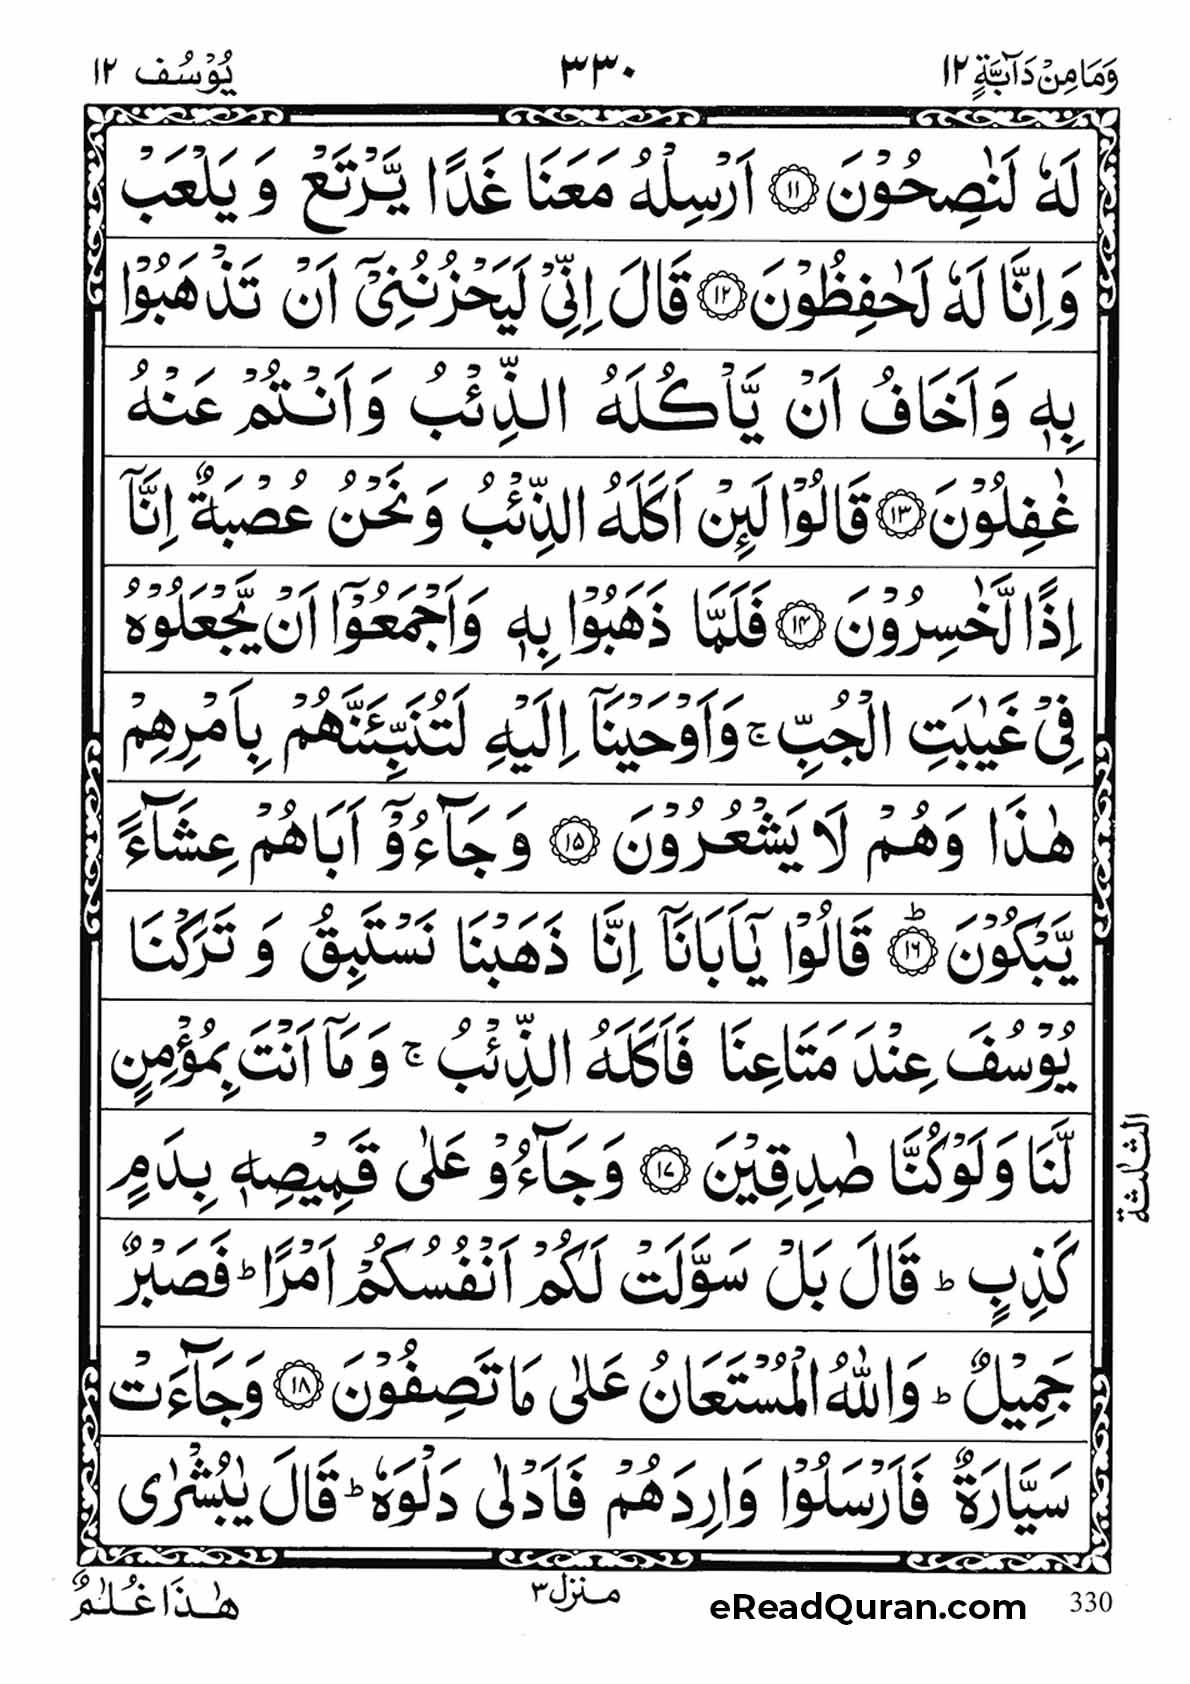 وَمَا مِنْ دَآبَّةٍ ١٢ ٣٣٠ يُوْسُف ١٢
لَهٗ لَنٰصِحُوْنَ ١١ اَرْسِلْهُ مَعَنَا غَدًا يَّرْتَعْ وَ يَلْعَبْ
وَاِنَّا لَهٗ لَحٰفِظُوْنَ ١٢ قَالَ اِنِّيْ لَيَحْزُنُنِيْٓ اَنْ تَذْهَبُوْا
بِهٖ وَاَخَافُ اَنْ يَّاْكُلَهُ الذِّئْبُ وَاَنْتُمْ عَنْهُ
غٰفِلُوْنَ ١٣ قَالُوْا لَىِٕنْ اَكَلَهُ الذِّئْبُ وَنَحْنُ عُصْبَةٌ اِنَّآ
اِذًا لَّخٰسِرُوْنَ ١٤ فَلَمَّا ذَهَبُوْا بِهٖ وَاَجْمَعُوْٓا اَنْ يَّجْعَلُوْهُ
فِيْ غَيٰبَتِ الْجُبِّ ۚ وَاَوْحَيْنَآ اِلَيْهِ لَتُنَبِّئَنَّهُمْ بِاَمْرِهِمْ
هٰذَا وَهُمْ لَا يَشْعُرُوْنَ ١٥ وَجَآءُوْٓ اَبَاهُمْ عِشَآءً
يَّبْكُوْنَ ١٦ؕ قَالُوْا يٰٓاَبَانَآ اِنَّا ذَهَبْنَا نَسْتَبِقُ وَ تَرَكْنَا
يُوْسُفَ عِنْدَ مَتَاعِنَا فَاَكَلَهُ الذِّئْبُ ۚ وَمَآ اَنْتَ بِمُؤْمِنٍ
لَّنَا وَلَوْ كُنَّا صٰدِقِيْنَ ١٧ وَجَآءُوْ عَلٰى قَمِيْصِهٖ بِدَمٍ
كَذِبٍ ؕ قَالَ بَلْ سَوَّلَتْ لَكُمْ اَنْفُسُكُمْ اَمْرًا ؕ فَصَبْرٌ
جَمِيْلٌ ؕ وَاللّٰهُ الْمُسْتَعَانُ عَلٰى مَا تَصِفُوْنَ ١٨ وَجَآءَتْ
سَيَّارَةٌ فَاَرْسَلُوْا وَارِدَهُمْ فَاَدْلٰى دَلْوَهٗ ؕ قَالَ يٰبُشْرٰى
الثلٰثة
هٰذَا غُلٰمٌ
منزل ٣
eReadQuran.com
330